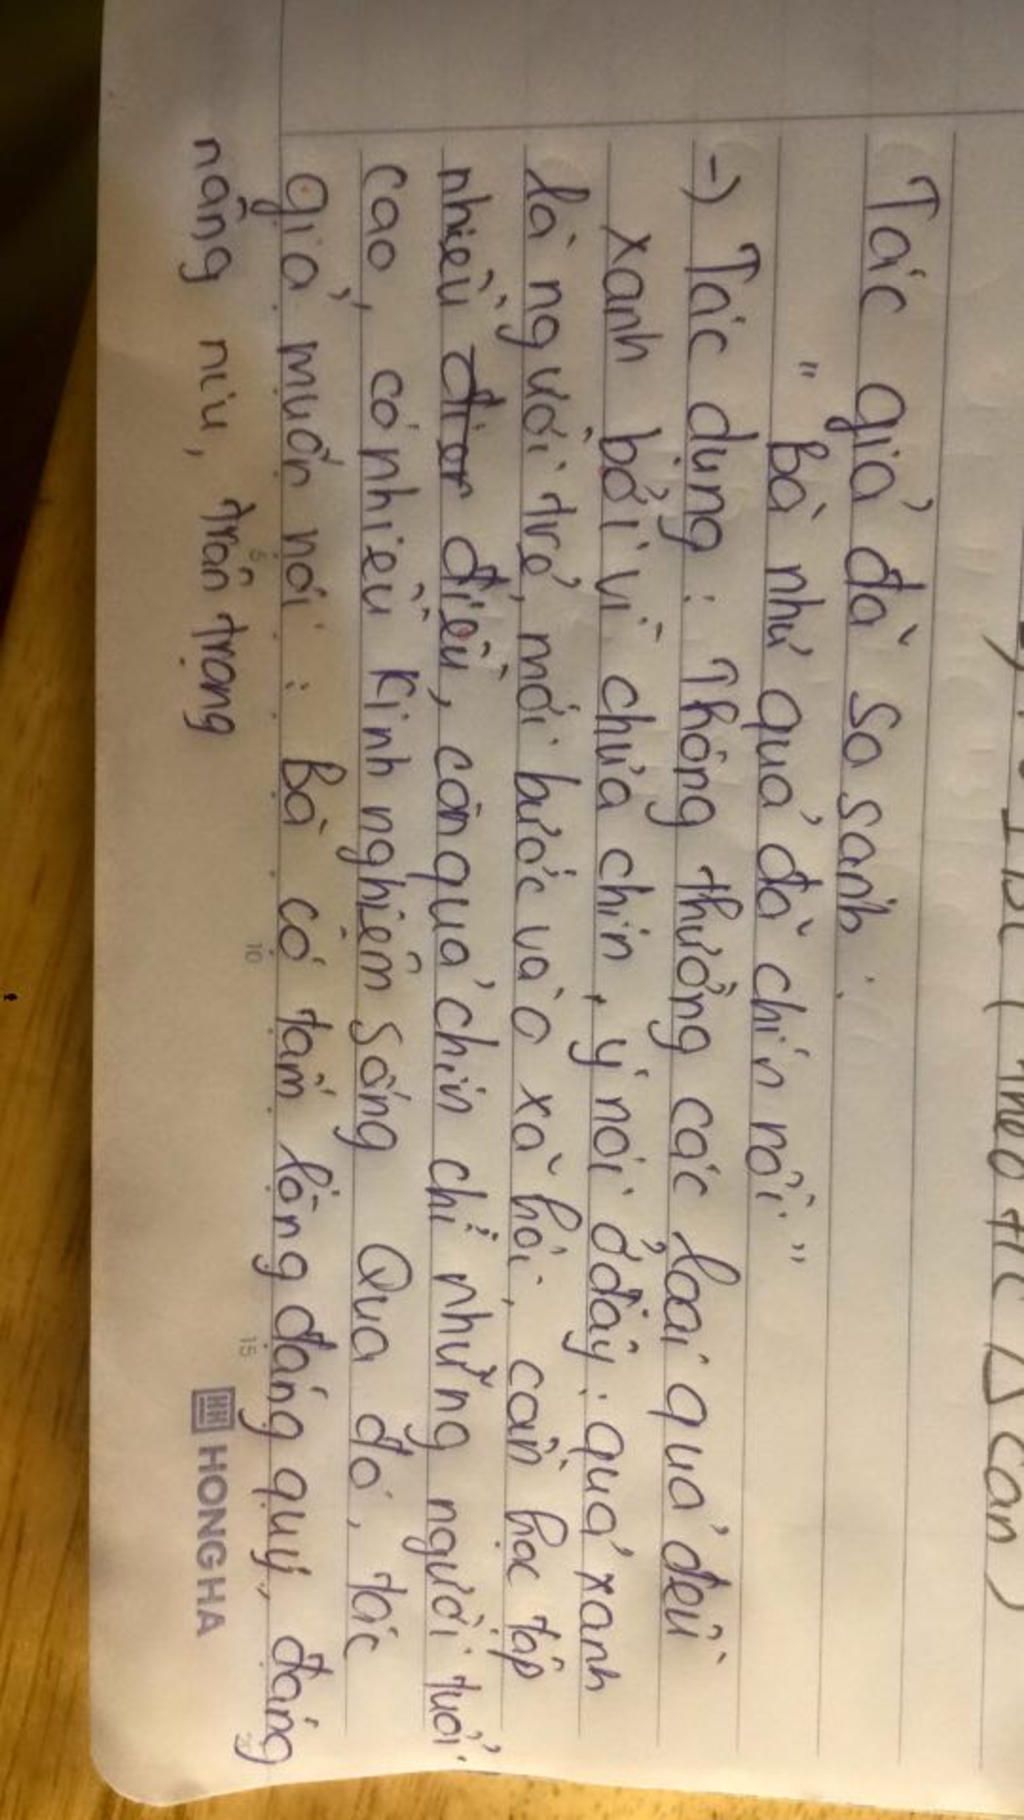 (theo t/c Δ cân)
Tác giả đã so sánh :
" Bà như quả đã chín rồi "
-) Tác dụng : Thông thường các loại quả đều
xanh bởi vì chưa chín, ý nói ở đây : quả xanh
là người trẻ, mới bước vào xã hội, cần học tập
nhiều điều, còn quả chín chỉ những người tuổi
cao, có nhiều kinh nghiệm sống Qua đó, tác
giả muốn nói : Bà có tấm lòng đáng quý, đáng
nâng niu, trân trọng
5 10 15
HH HONG HA